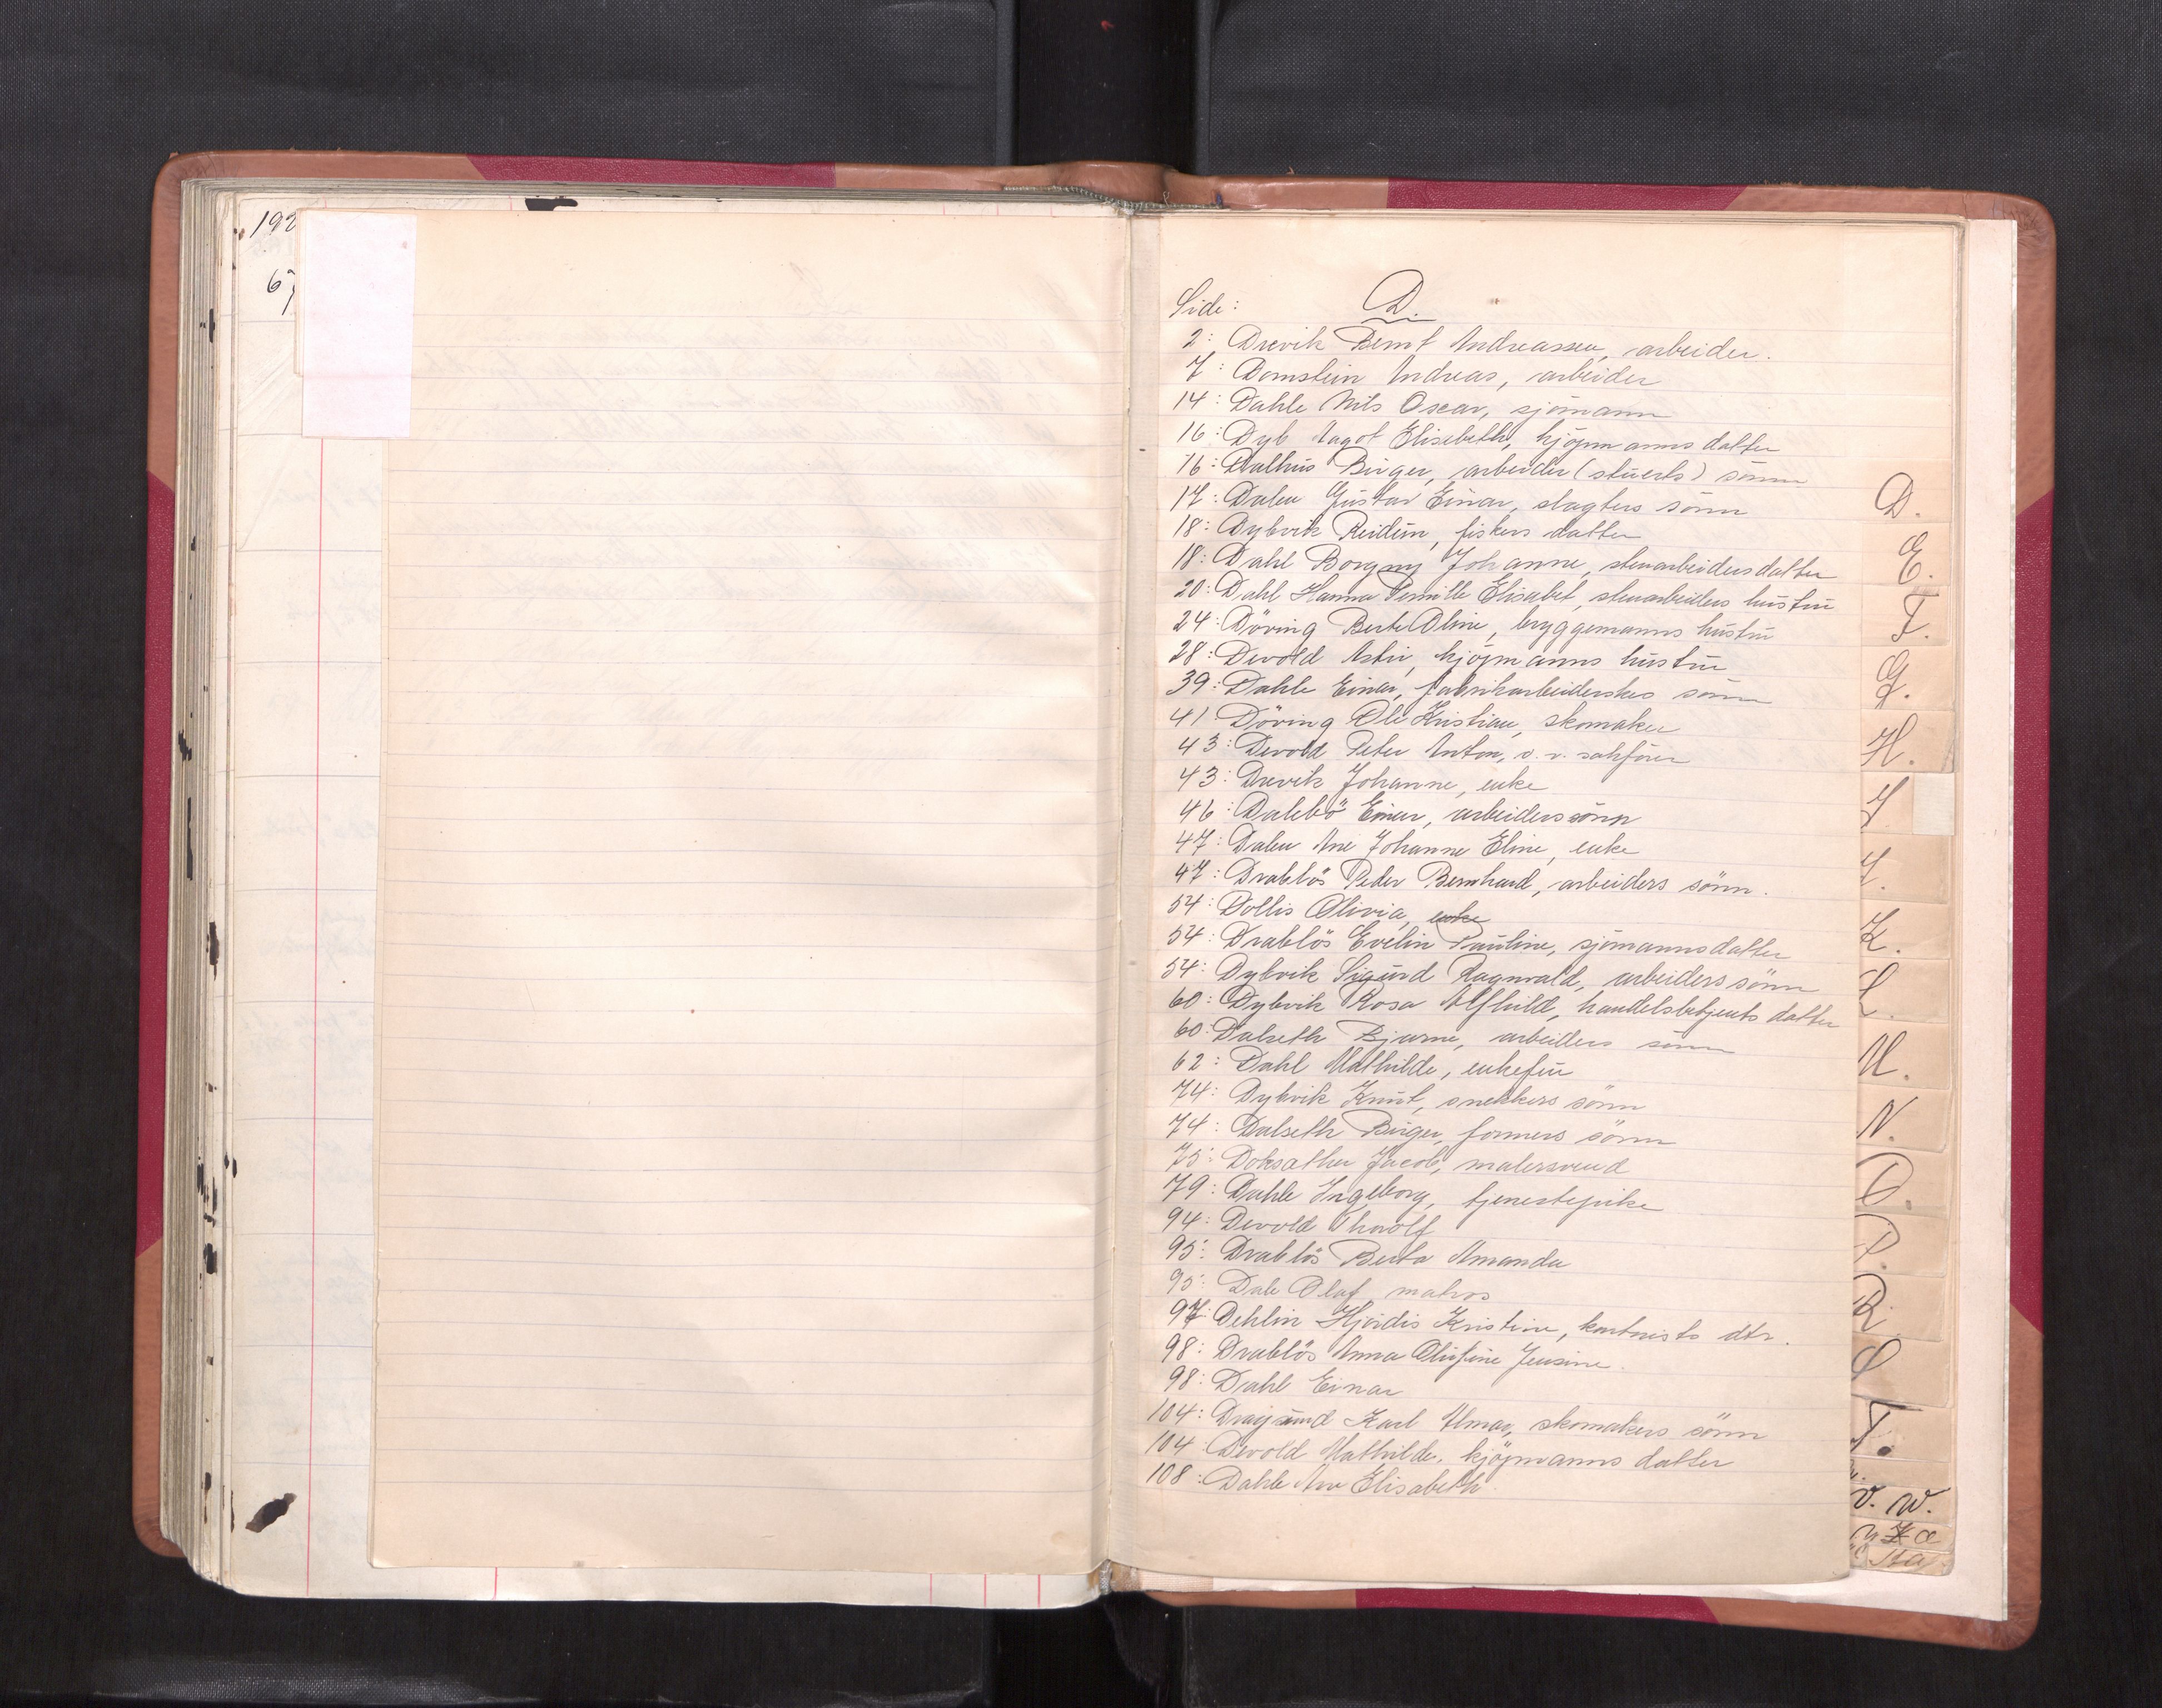 192
67
Side: D.
2: Drevik Bernt Andreassen, arbeider.
7: Domstein Andreas, arbeider
14: Dahle Nils Oscar, sjömann
16: Dyb Aagot Elisebeth, kjöpmanns datter
16: Dalhus Birger, arbeider (stuerts) sönn
17: Dalen Gustav Einar, slagters sönn
18: Dybvik Reidun, fiskers datter
18: Dahl Borgny Johanne, stenarbeidersdatter
20: Dahl Hanna Pernille Elisabet, stenarbeiders hustru
24: Döving Berte Oline, bryggemanns hustru
28: Devold Astri, kjöpmanns hustru
39: Dahle Einar, fabrikarbeiderskes sönn
41 Döving Ole Kristian, skomaker
43: Devold Peter Anton, o. r. sakförer
43: Drevik Johanne, enke
46: Dalebö Einar, arbeiderssönn
47: Dalen Ane Johanne Eline, enke
47: Drabløs Peder Bernhard, arbeiders sönn.
54: Dollis Olivia, enke
54: Drablös Evelin Pauline, sjömannsdatter
54: Dybvik Sigurd Ragnvald, arbeiderssönn
60: Dybvik Rosa Alfhild, handelsbetjents datter
60: Dalseth Bjarne, arbeiders sönn
62: Dahl Mathilde, enkefru
74: Dybvik Knut, snekkers sönn
74: Dalseth Birger, formers sönn
75: Doksæther Jacob, malersvend
79: Dahle Ingeborg, tjenestepike
94: Devold Thorolf
95: Drablös Berta Amanda
95: Dale Olaf, matros
97: Dehlin Hjördis Kristine, kontorists dtr.
98: Drablös Anna Olufine Jensine.
98: Dahl Einar
104: Dragsund Karl Almar, skomakers sönn
104 Devold Mathilde. kjöpmanns datter
108: Dahle Ane Elisabeth.
D.
E.
F.
G.
H.
I
J.
K.
L.
M.
N.
O.
P.
R.
S
T.
V. W.